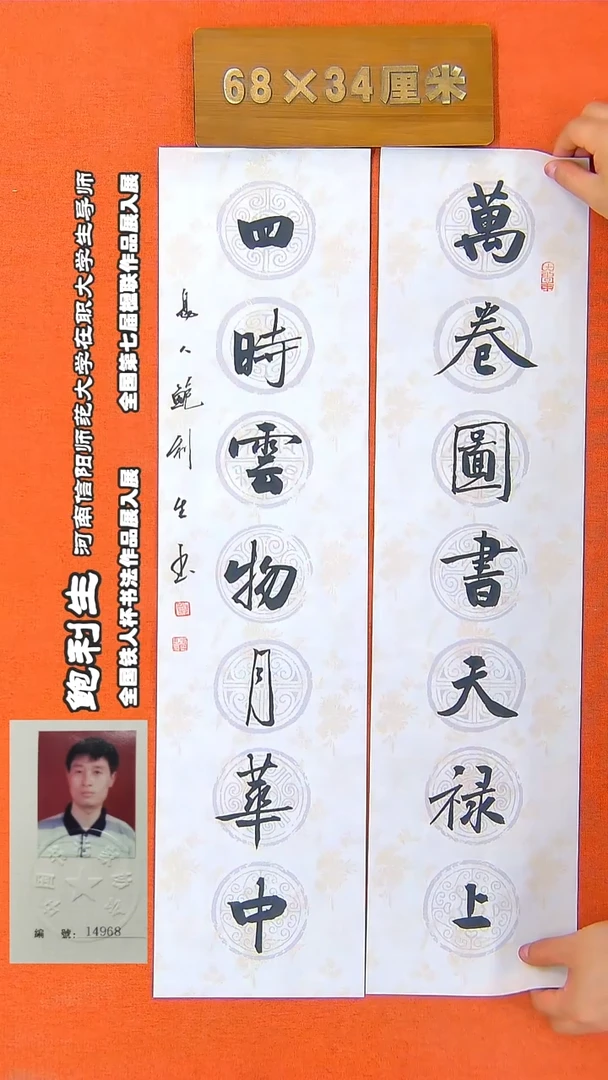 68×34厘米
萬卷圖書天禄上
四時雲物月華中
鮑利生书
鲍利生 河南信阳师范大学在职大学生导师
全国铁人杯书法作品展入展 全国第七届楹联作品展入展
編 號: 14968